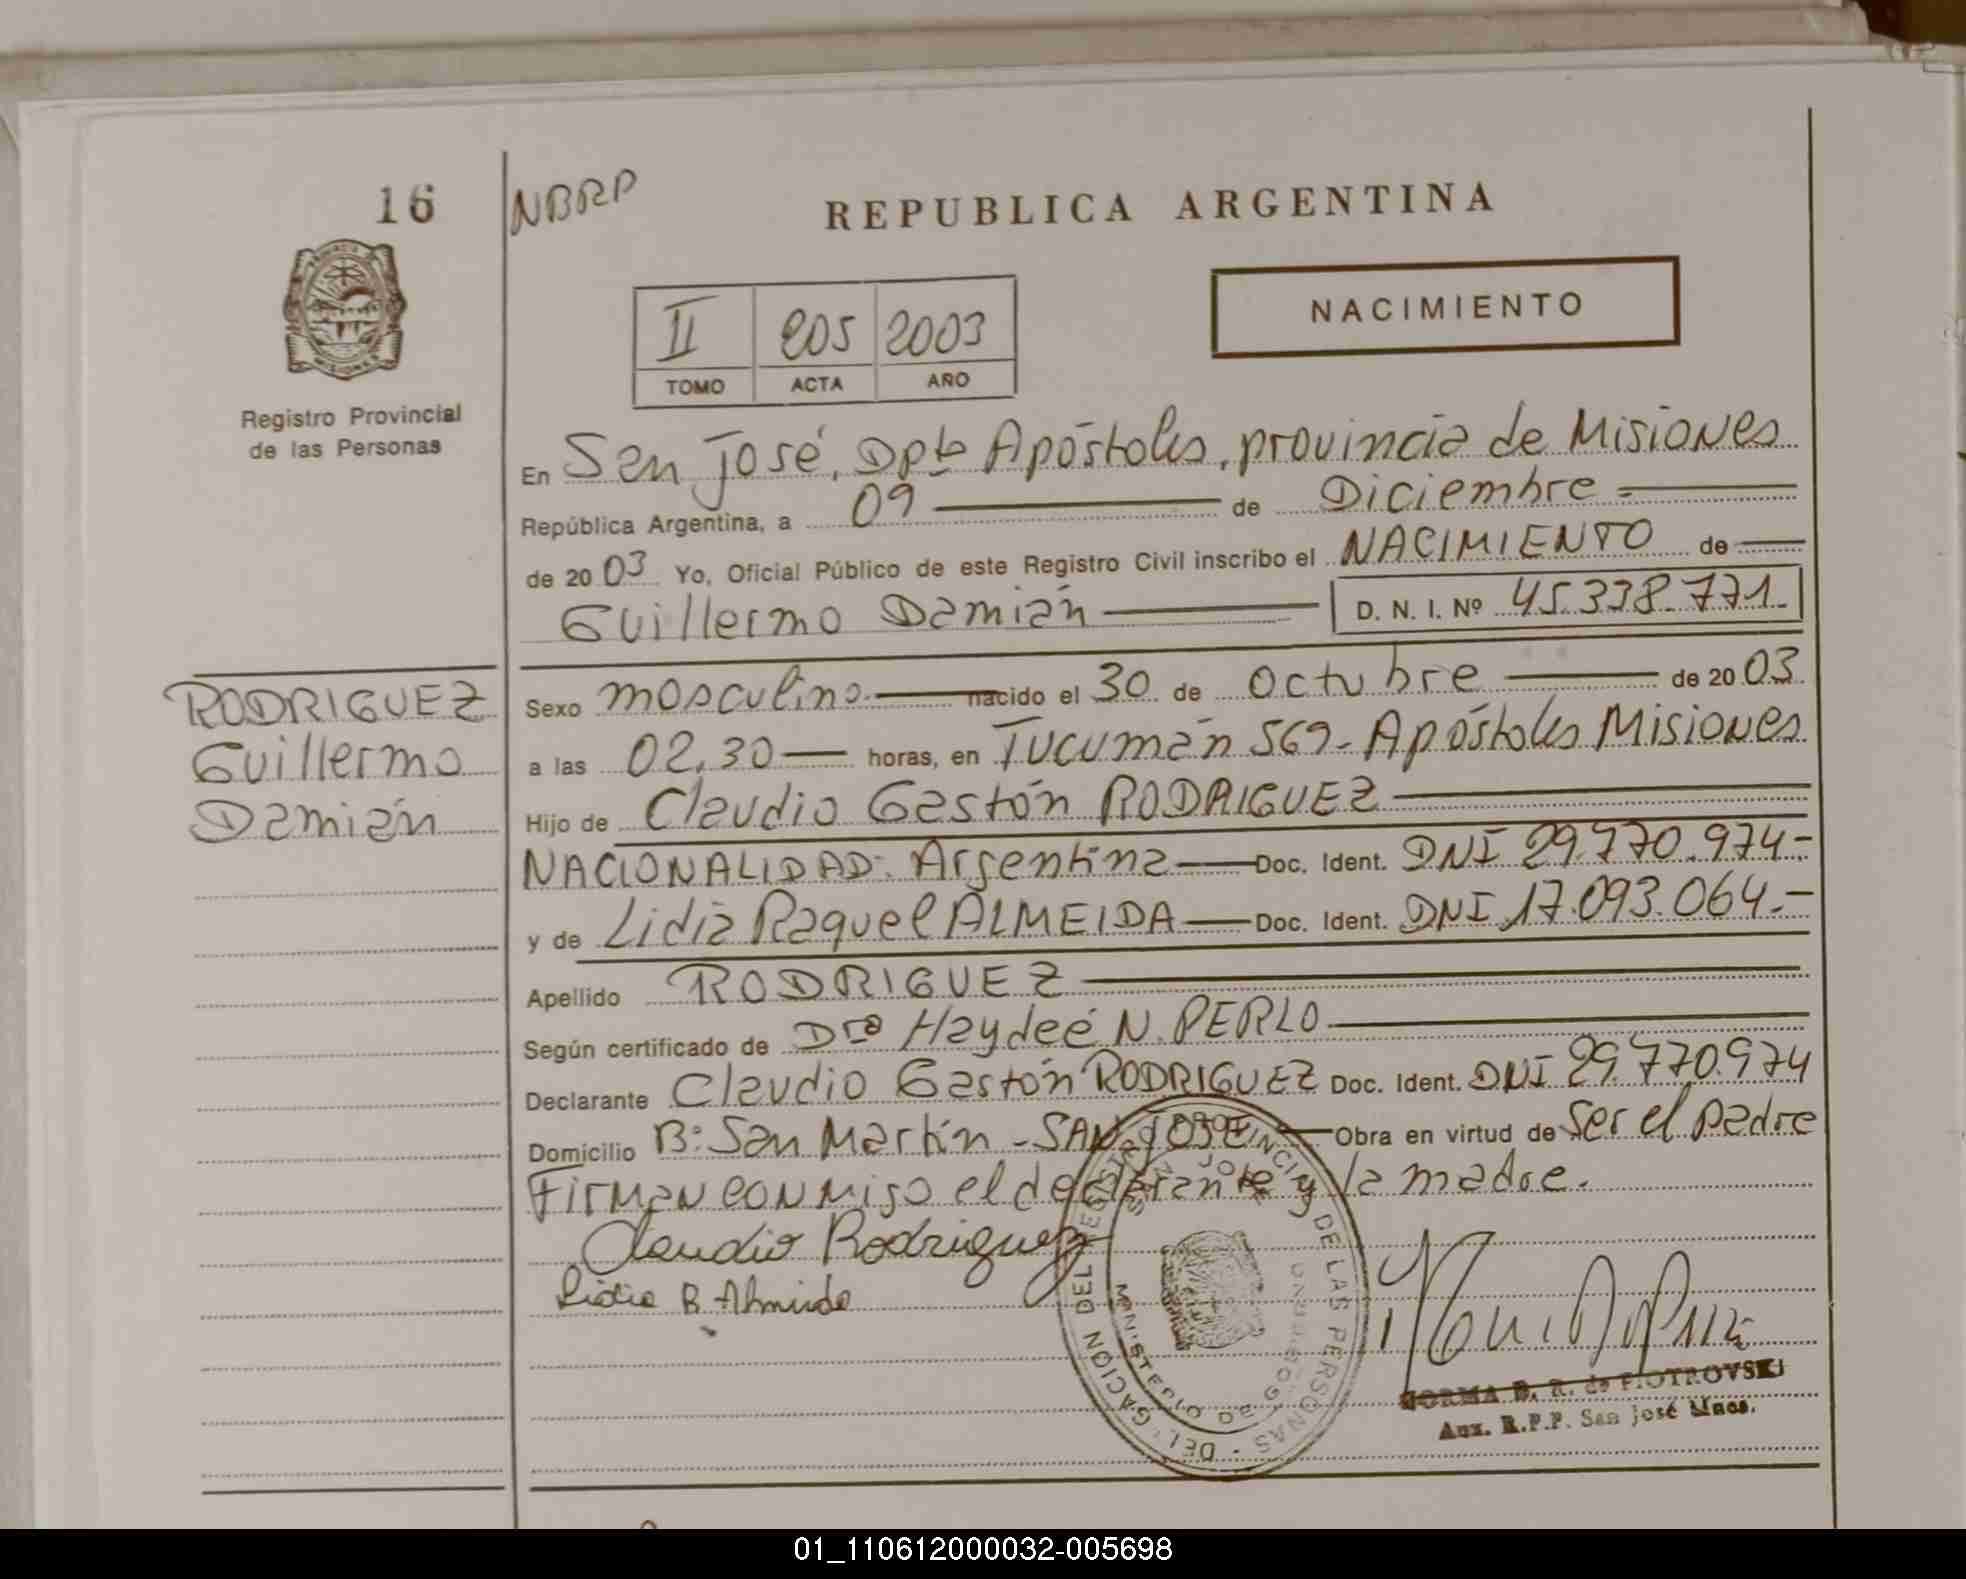 16
NBRP
REPUBLICA ARGENTINA
NACIMIENTO
II 205 2003
TOMO ACTA AÑO
Registro Provincial
de las Personas
En San José, Dpto Apóstoles, provincia de Misiones
República Argentina, a 09 de Diciembre
de 2003 Yo, Oficial Público de este Registro Civil inscribo el NACIMIENTO de
Guillermo Damián D. N. I. Nº 45.338.771.-
RODRIGUEZ
Guillermo
Damián
Sexo masculino nacido el 30 de Octubre de 2003
a las 02.30 horas, en Tucumán 569 - Apóstoles Misiones
Hijo de Claudio Gastón RODRIGUEZ
NACIONALIDAD: Argentina Doc. Ident. DNI 29.770.974-
y de Lidia Raquel ALMEIDA Doc. Ident. DNI 17.093.064.-
Apellido RODRIGUEZ
Según certificado de Dra Haydeé N. PERLO
Declarante Claudio Gastón RODRIGUEZ Doc. Ident. DNI 29.770.974
Domicilio B: San Martín - SAN JOSE Obra en virtud de ser el padre
Firman conmigo el declarante y la madre.
Claudio Rodriguez
Lidia R Almeida
NORMA B. R. de PIOTROVSKI
Aux. R.P.P. San José Mnes.
01_110612000032-005698